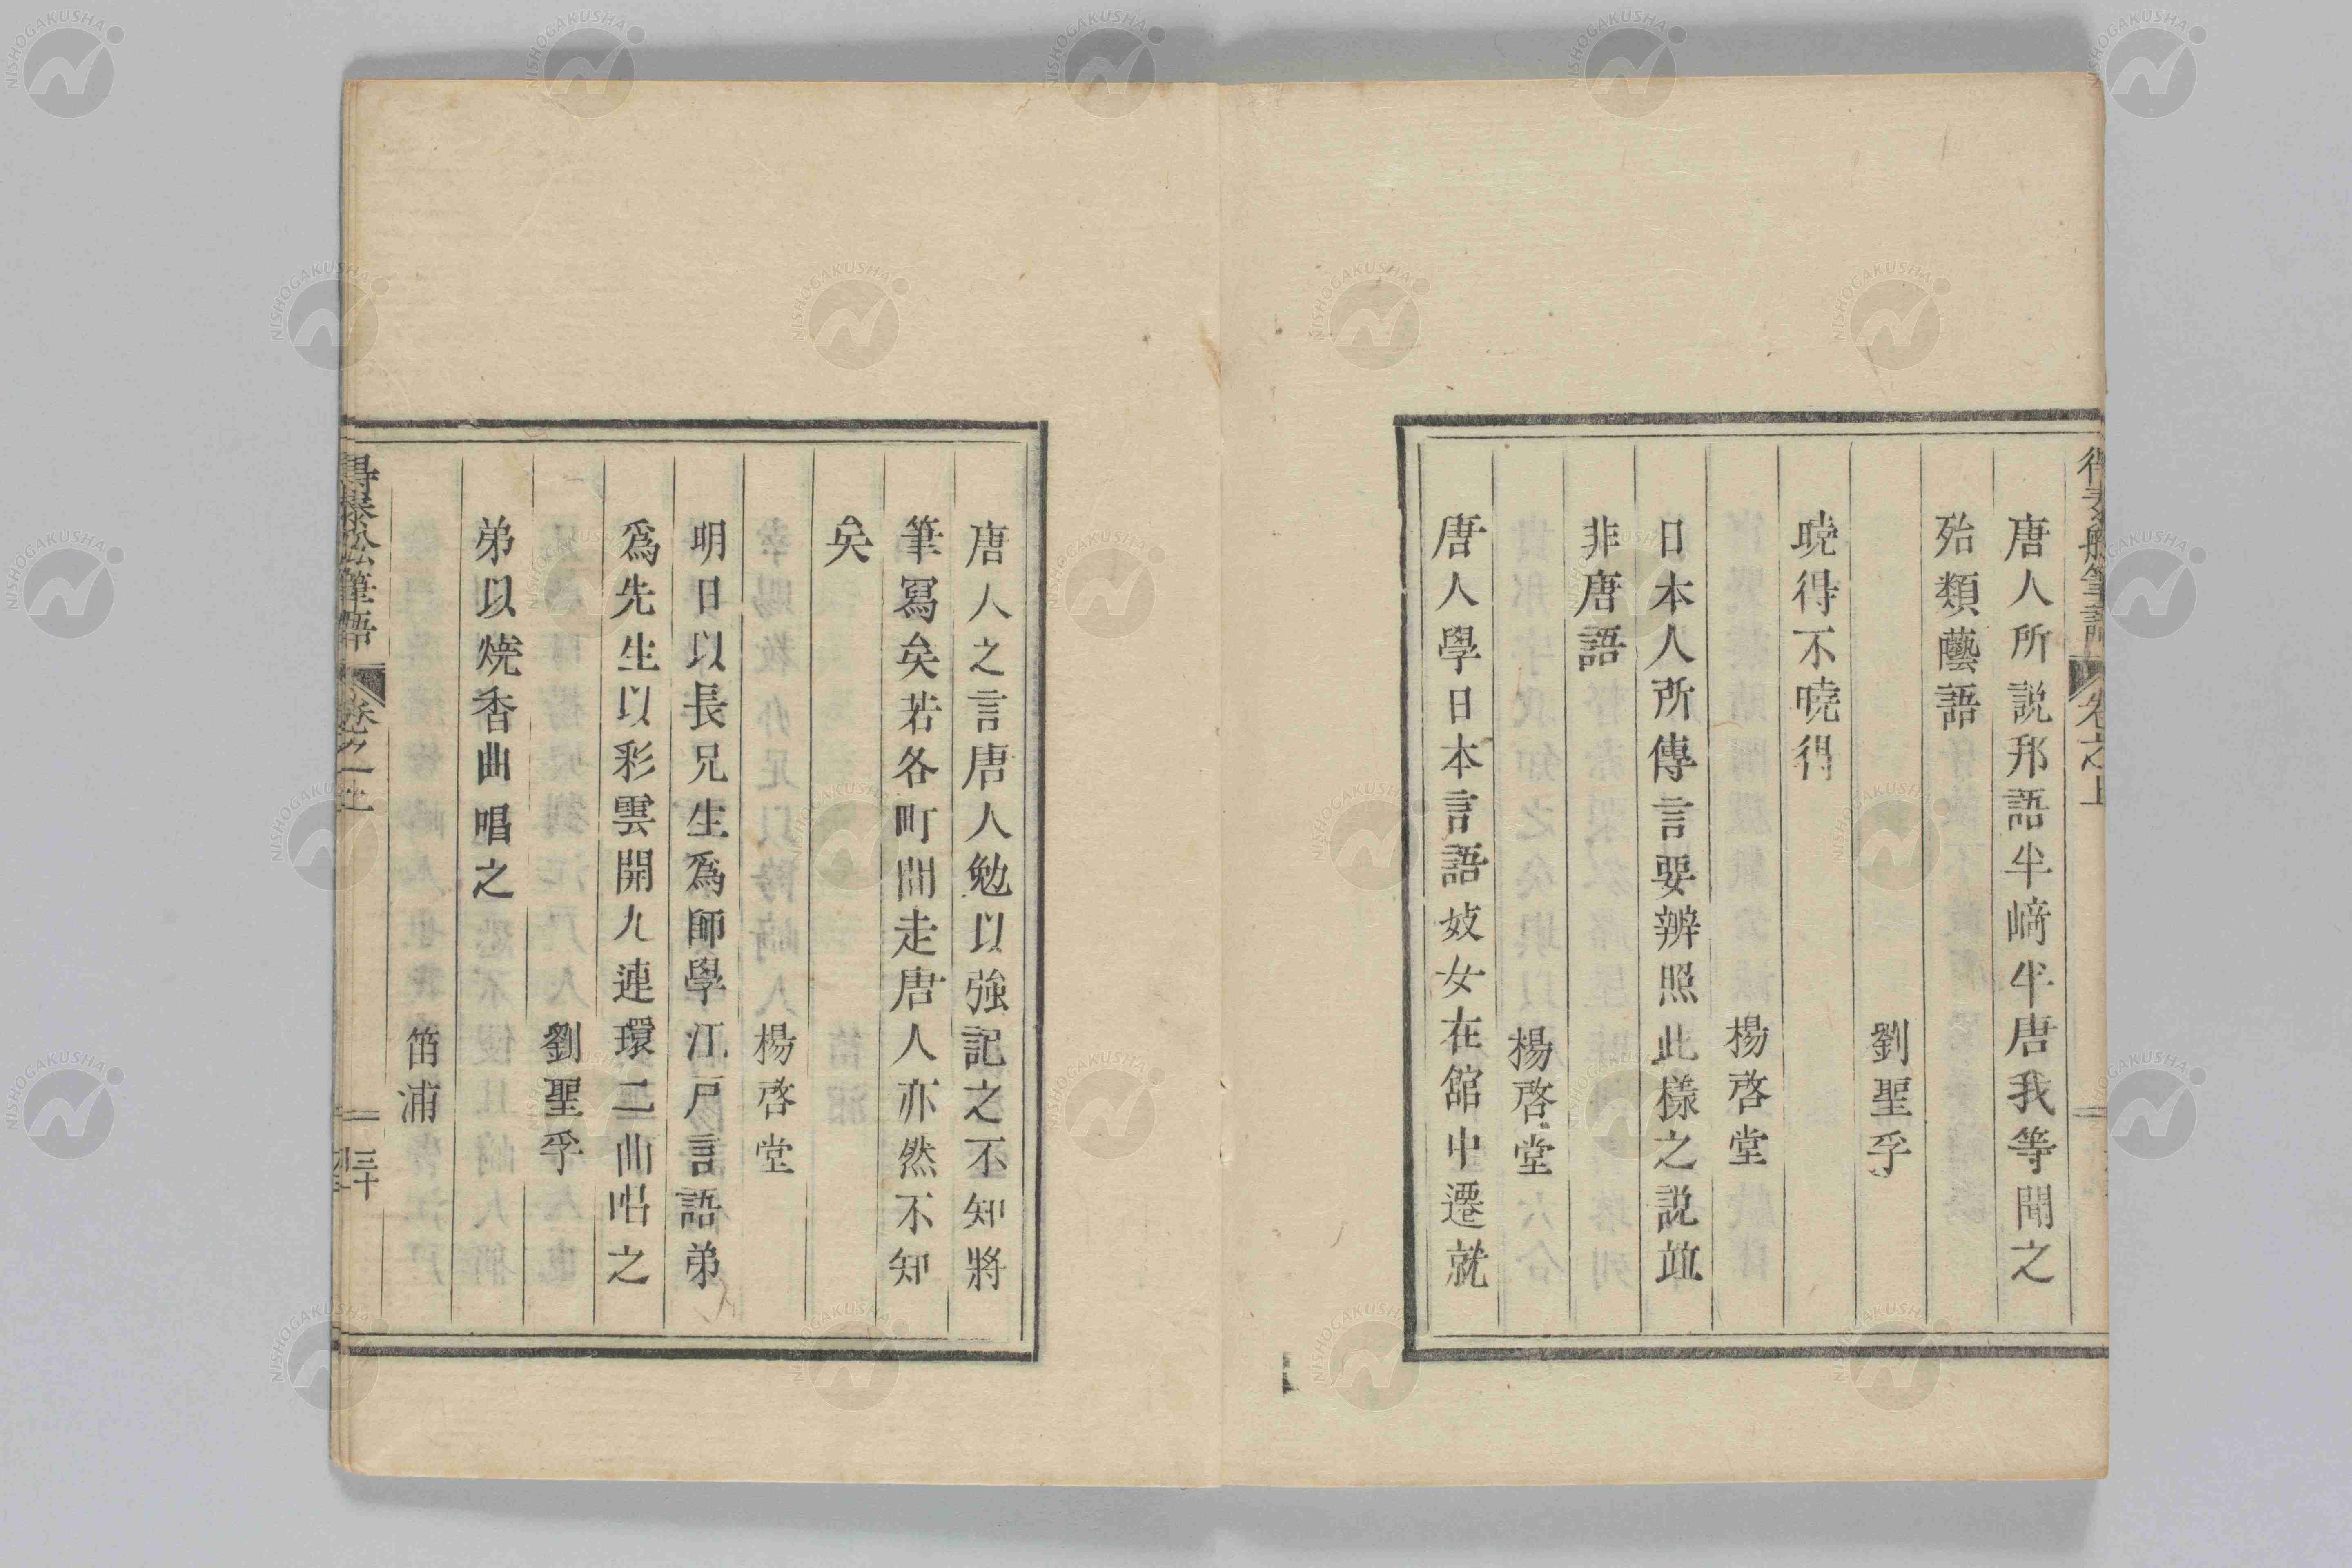 唐人所説邦語半崎半唐我等聞之
殆類藝語
劉聖孚
暁得不暁得
楊啓堂
日本人所傳言要辨照此樣之説竝
非唐語
楊啓堂
唐人學日本言語妓女在館中遷就
唐人之言唐人勉以強記之不知將
筆寫矣若各町間走唐人亦然不知
矣
楊啓堂
明日以長兄生爲師學江戸言語弟
爲先生以彩雲開九連環二曲唱之
劉聖孚
弟以燒香曲唱之
笛浦
得泰舩筆語 卷之上
三十
NISHOGAKUSHA